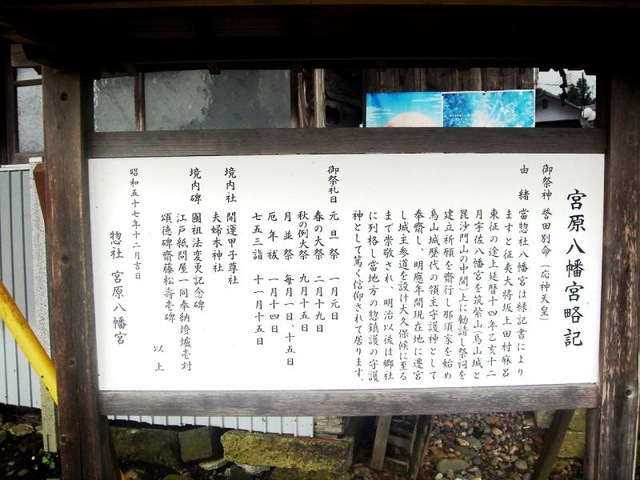 宮原八幡宮略記
御祭神 誉田別命（応神天皇）
由緒 当惣社八幡宮は縁記書により
ますと征夷大将坂上田村麻呂
東征の途上延暦十四年乙亥十二
月宇佐八幡宮を筑紫山（烏山城と
毘沙門山の中間）上に勧請し祭祠を
建立祈願を齋行し那須家を始め
烏山城歴代の領主守護神として
奉齋し、明應年間現在地に遷宮
し城主参道を設け大久保候に至る
まで崇敬され、明治以後は郷社
に列格し当地方の惣鎮護の守護
神として篤く信仰されて居ります。
御祭礼日 元旦祭 一月元日
春の大祭 二月十九日
秋の例大祭 九月十五日
月並祭 毎月一日、十五日
厄年祓 一月十四日
七五三詣 十一月十五日
境内社 開運甲子尊社
夫婦木神社
境内碑 團祖法変更記念碑
江戸紙問屋一同奉納燈爐壱対
頌徳碑齋藤松壽壱碑
以上
昭和五十七年十二月吉日
惣社 宮原八幡宮